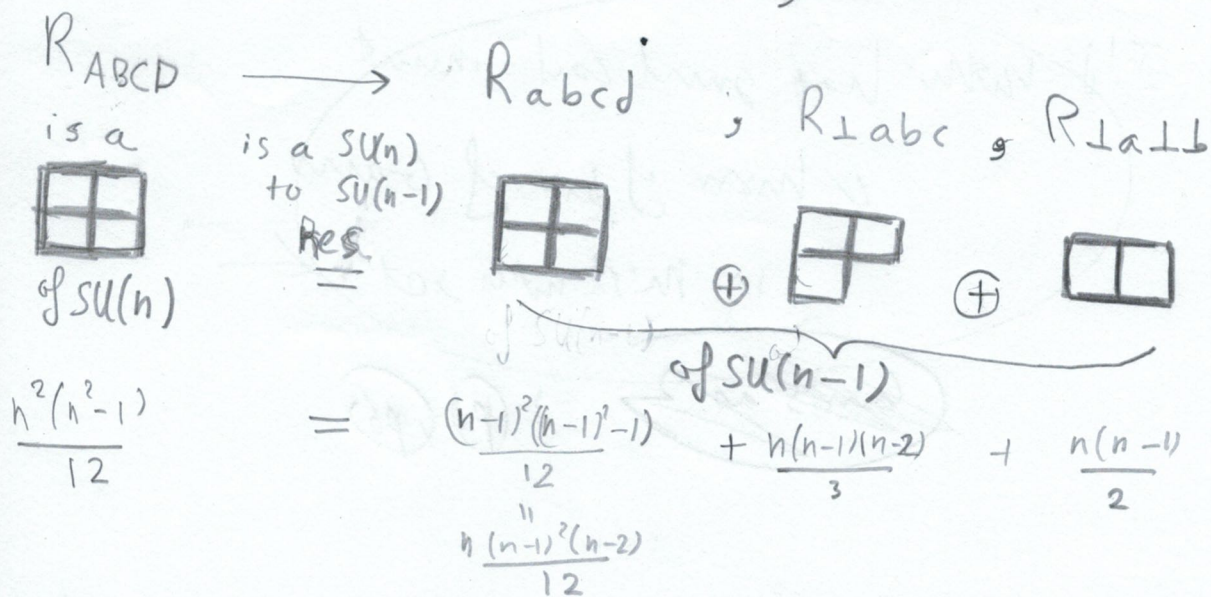 R_{ABCD} ⟶ R_{abcd} , R_{⊥abc} , R_{⊥a⊥b}
is a
is a SU(n)
to SU(n-1)
Res
of SU(n)
⊕ ⊕
of SU(n-1)
\frac{n^2(n^2-1)}{12} = \frac{(n-1)^2((n-1)^2-1)}{12} + \frac{n(n-1)(n-2)}{3} + \frac{n(n-1)}{2}
"
\frac{n(n-1)^2(n-2)}{12}